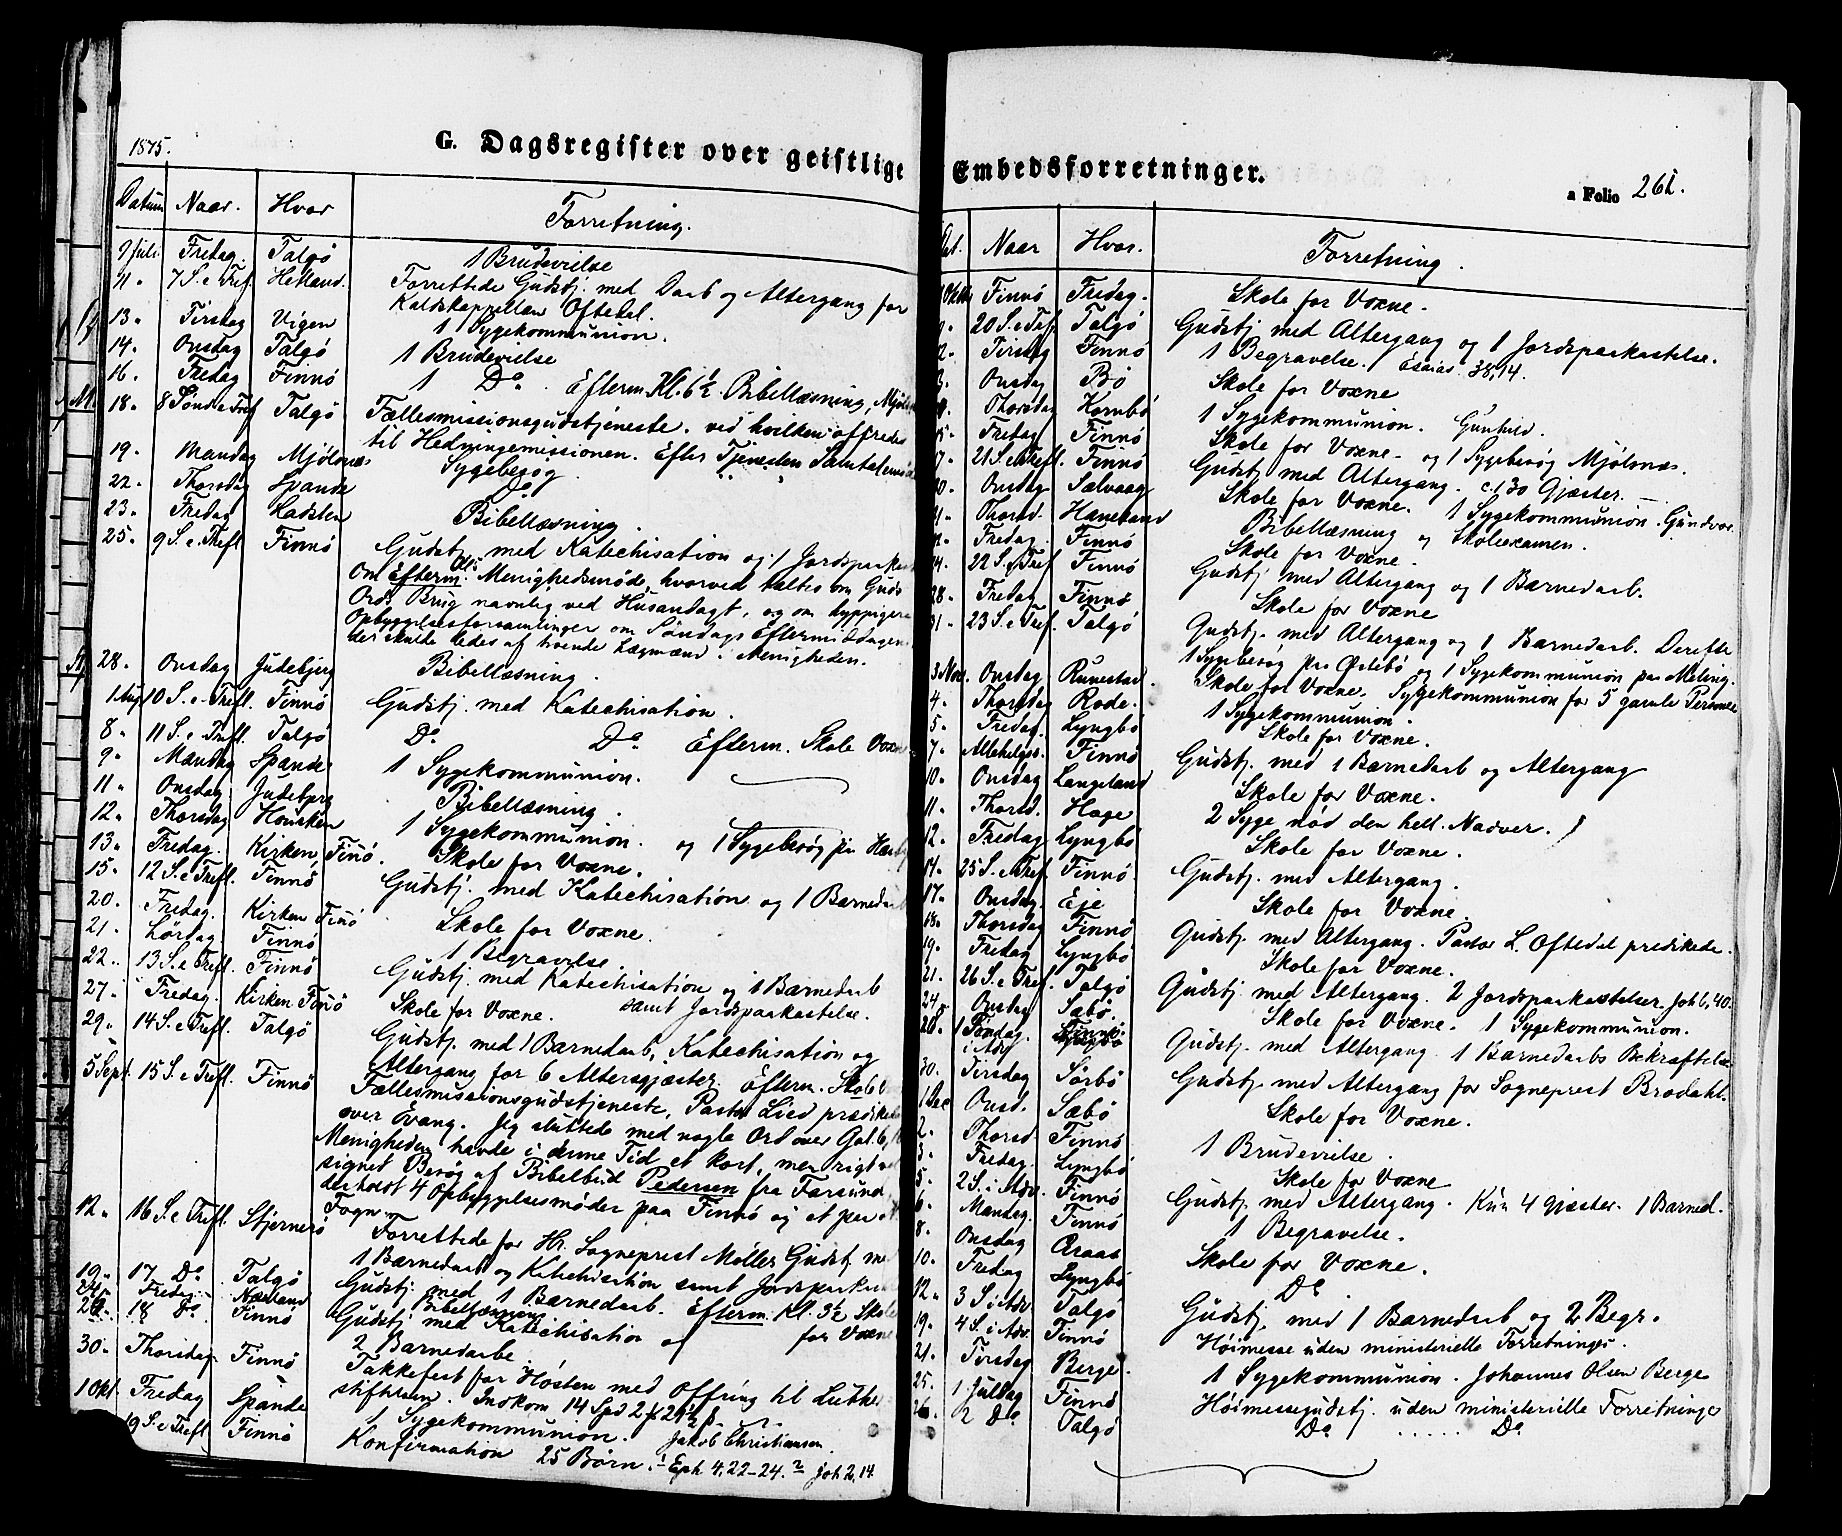 1875.
G. Dagsregister over geistlige
Datum Naar. Hvor Forretning.
9 Juli Fredag. Talgö 1 Brudevielse
11. 7 S. e Tref. Helland. Forrettede Gudstj. med Daab og Altergang for
Kaldskappellan Oftedal.
13. Tirsdag Vigen 1 Sygekommunion.
14. Onsdag Talgö 1 Brudevielse
16. Fredag Finnö 1 Do. Efterm. Kl. 6½ Bibellæsning,
18. 8 Sönd e Tref Talgö Fællesmissionsgudstjeneste. ved hvilken offredes
til Hedningemissionen. Efter Tjenesten
19. Mandag Mjölsnæs Sygebesøg
22. Thorsdag Spande Do
23. Fredag Ladsten Bibellæsning.
25. 9 S. e. Trefl Finnö Gudstj. med Katechisation og 1 Jordspaakast
Om Efterm. Menighedsmöde, hvorved taltes om Guds
Ords Brug navnlig ved Husandagt, og om hyppigere
Opbyggelsesforsamlinger om Söndags Eftermiddagen
der skulde ledes af troende Lægmænd i Menigheden.
28. Onsdag Judebjerg Bibellæsning.
1 Aug 10 S. e Trefl. Finnö Gudstj. med Katechisation.
8. 11 S. e Trefl. Talgö Do Do Efterm. Skole Voxne
9. Mandag Spande 1 Sygekommunion.
11. Onsdag Judebjerg Bibellæsning.
12. Thorsdag 1 Sygekommunion. og 1 Sygebesög
13. Fredag. Kirken, Finnö. Skole for Voxne.
15. 12 S. e Trefl. Finnö Gudstj. med Katechisation og 1 Barnedaab
20. Fredag. Kirken Finnö Skole for Voxne.
21. Lördag Finnö 1 Begravelse.
22. 13 S. e Trefl. Finnö Gudstj. med Katechisation og 1 Barnedaab
samt Jordspaakastelse.
27. Fredag. Kirken Finnö Skole for Voxne.
29. 14 S. e Trefl. Talgö Gudstj. med 1 Barnedaab, Katechisation og
Altergang for 6 Altersgjæster. Efterm. Skole
5 Sept. 15 S. e Trefl. Finnö Fællesmissionsgudstjeneste, Pastor Lied prædikede
over Evang. Jeg sluttede med nogle Ord over Gal. 6,
Menigheden havde i denne Tid et kort, men rigt vel
signet Besög af Bibelbud Pedersen fra Farsund
der holdt 4 Opbyggelsesmöder paa Finnö og et paa
Fogn.
12. 16 S. e Trefl. Stjernerö Forrettede for Hr. Sogneprest Möller Gudstj. med
1 Barnedaab og Katechisation samt Jordspaakast
19. 17 Do Talgö Gudstj. med 1 Barnedaab. Efterm. Kl. 3½ Skole
for Voxne
24. Fredag Næsland Bibellæsning
26. 18 Do Finnö Gudstj. med Katechisation og
2 Barnedaabe
30. Thorsdag Finnö Takkefest for Hösten med Offring til
stiftelsen. Indkom 14 Spd 2
1 Okt. Fredag Spande 1 Sygekommunion. Jakob Christiansen.
19 S. e Trefl Finnö Konfirmation 25 Börn. Eph 4, 22-24. Joh 2, 14
Embedsforretninger.
a Folio 261.
Dat. Naar Hvor. Forretning.
Finnö Fredag. Skole for Voxne.
20 S. e Tref. Talgö Gudstj. med Altergang og 1 Jordspaakastelse.
Tirsdag Finnö 1 Begravelse. Esaias 38,14.
Onsdag Bö Skole for Voxne
Thorsdag Kornbö 1 Sygekommunion. Gunhild.
15. Fredag Finnö Skole for Voxne. og 1 Sygebesøg Mjölsnæs.
17. 21 S. e Trefl. Finnö Gudstj. med Altergang. c. 130 Gjæster.
20. Onsdag Sælvaag Skole for Voxne. 1 Sygekommunion. Gundvor
21. Thorsd. Haneland Bibellæsning og Skoleexamen.
22. Fredag. Finnö Skole for Voxne.
24. 22 S. e Tref Finnö Gudstj. med Altergang og 1 Barnedaab.
28. Fredag Finnö Skole for Voxne
31. 23 S. e Tref. Talgö Gudstj. med Altergang og 1 Barnedaab. Derefter
1 Sygebesøg paa Östebö og 1 Sygekommunion paa Meling.
3 Nov. Onsdag Runestad. Skole for Voxne. Sygekommunion for 5 gamle Personer
4. Thorsdag Rode. 1 Sygekommunion.
5. Fredag. Lyngbö Skole for Voxne.
7. Allehelgs. Finnö Gudstj. med 1 Barnedaab og Altergang
10. Onsdag Langeland Skole for Voxne.
11. Thorsd. Hage 2 Syge nöd den hell. Nadver.
12. Fredag Lyngbö Skole for Voxne.
14. 25 S. e Tref. Finnö. Gudstj. med Altergang.
17. Onsdag. Eje Skole for Voxne.
18. Thorsdag Finnö Gudstj. med Altergang. Pastor L. Oftedal prædikede.
19. Fredag Lyngbö Skole for Voxne.
21. 26 S. e Tref. Talgö Gudstj. med Altergang. 2 Jordspaakastelser. Joh 6,40.
24. Onsdag Sæbö. Skole for Voxne. 1 Sygekommunion.
28. 1 Söndag. i Adv Finnö Gudstj. med Altergang. 1 Barnedaabs Bekræftelse
30. Tirsdag Sörbö Gudstj. med Altergang for Sogneprest Brodahl.
1 Dec Onsd. Sæbö Skole for Voxne.
2. Thorsd Finnö 1 Brudevielse.
3. Fredag. Lyngbö Skole for Voxne
5. 2 S. i Adv. Finnö Gudstj. med Altergang. Kun 4 Gjæster. 1 Barned.
6. Mandag. Finnö 1 Begravelse.
8. Onsdag Araas Skole for Voxne.
10. Fredag Lyngbö Do
12. 3 S. i Adv. Talgö Gudstj. med 1 Barnedaab og 2 Begr.
19. 4 S. i Adv. Finnö Höimesse uden ministerielle Forretninger.
21. Tirsdag Berge 1 Sygekommunion. Johannes Olsen Berge
25. 1 Juldag Finnö Höimessegudstj. uden ministerielle Forretninger
26. 2 Do Talgö Do ..... Do